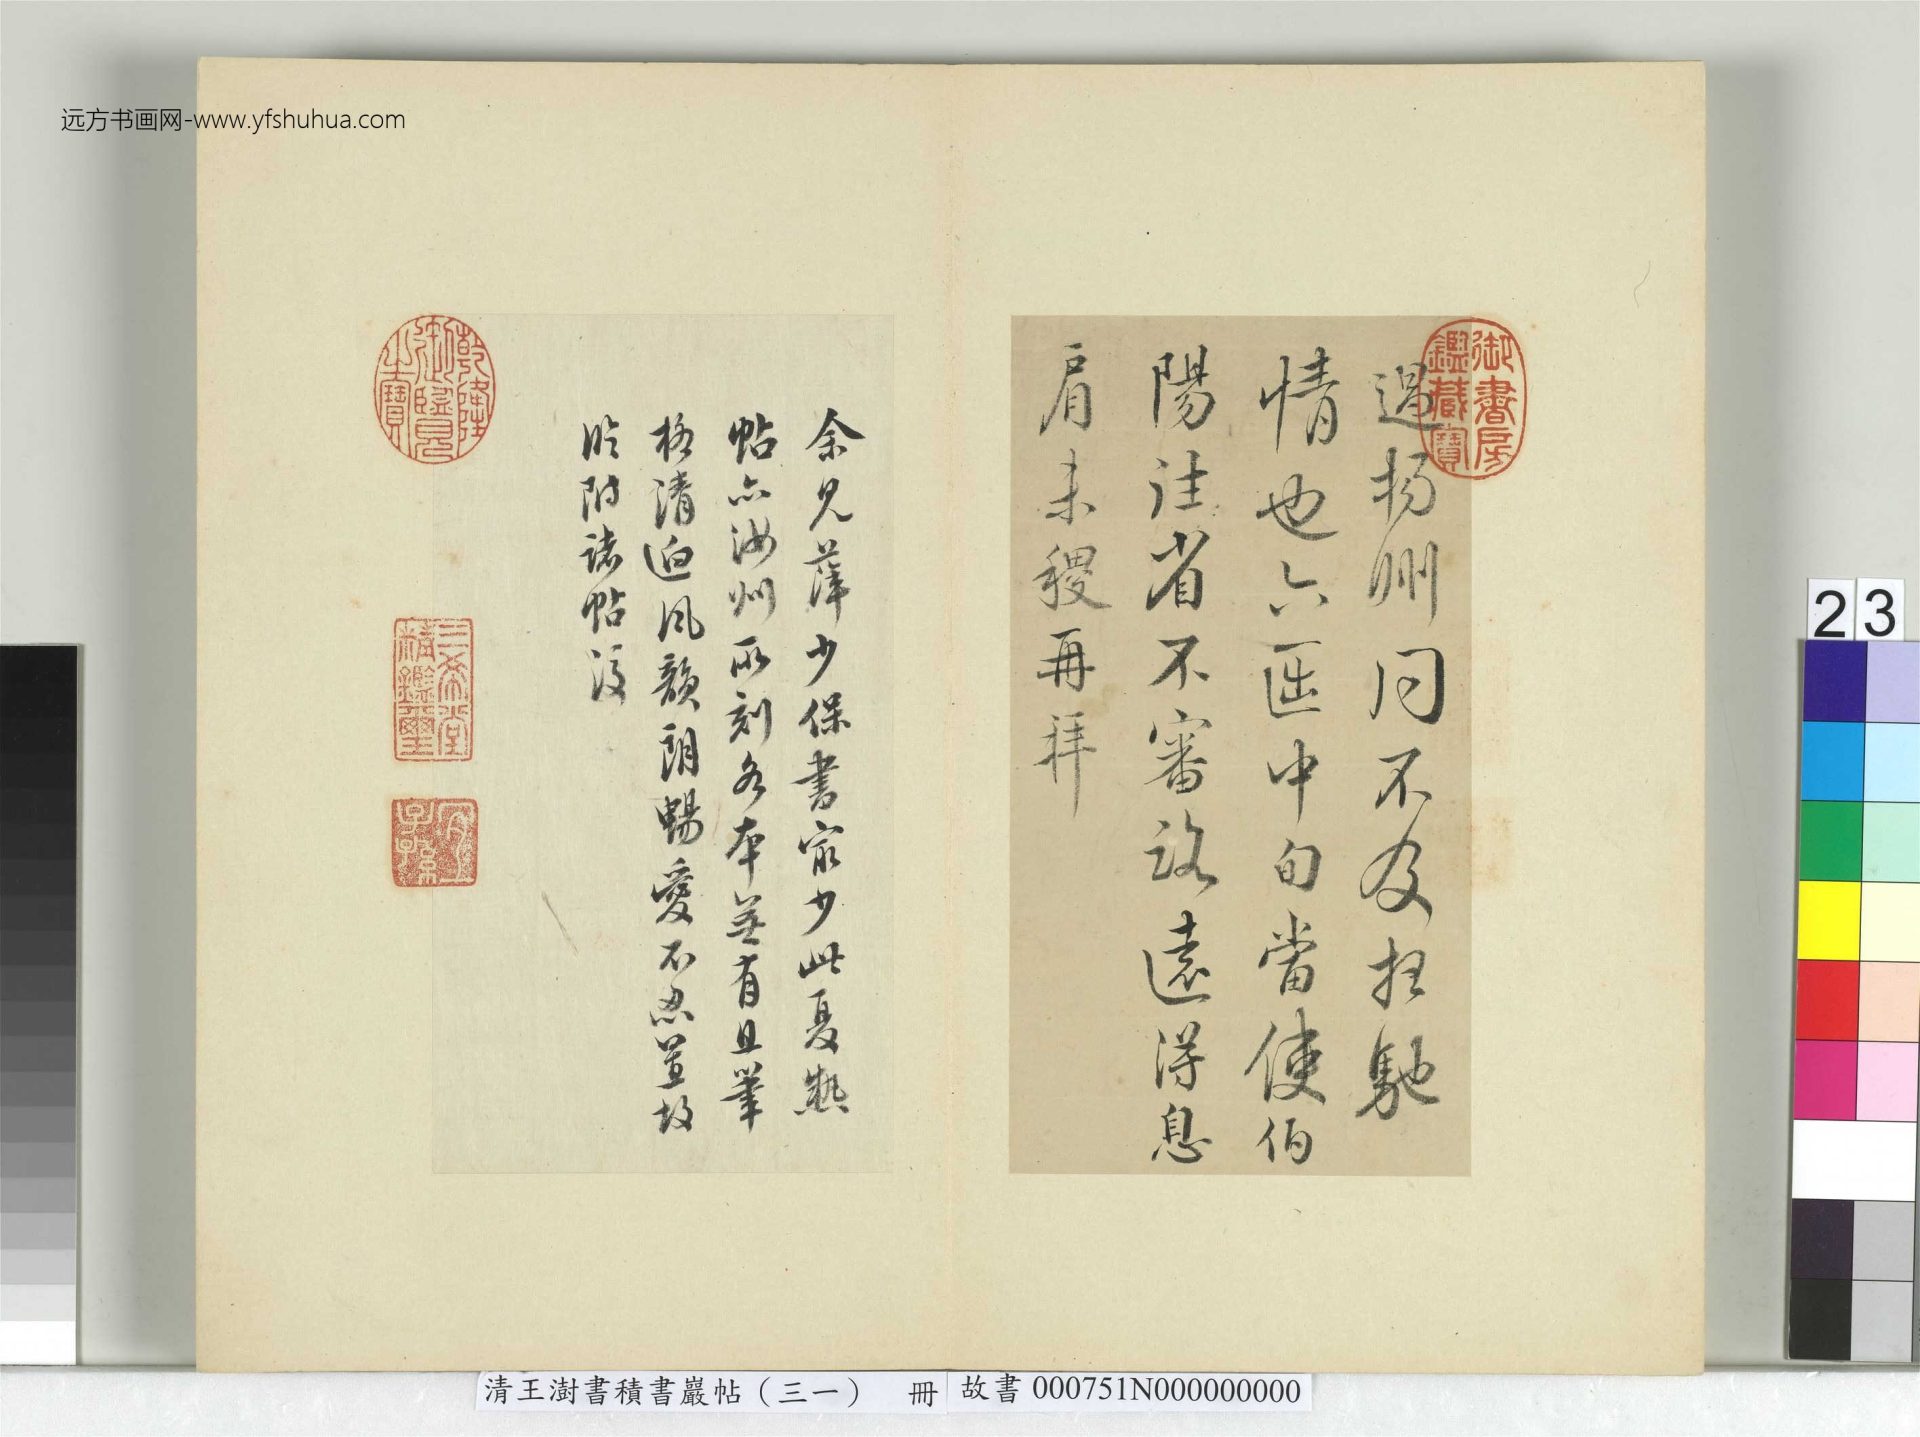 远方书画网-www.yfshuhua.com
御書房鑑藏寶
過揚州同不及拄馳
情也六匡中旬當使伯
陽往省不審諮遠得息
肩未稷再拜
余見薛少保書家少此夏熱
帖亦汝州所刻各本無有且筆
格清迥風韻朗暢愛不忍置故
臨附諸帖後
乾隆御覽之寶
三希堂精鑑璽
宜子孫
23
清王澍書積書巖帖（三一） 冊
故書 000751N000000000